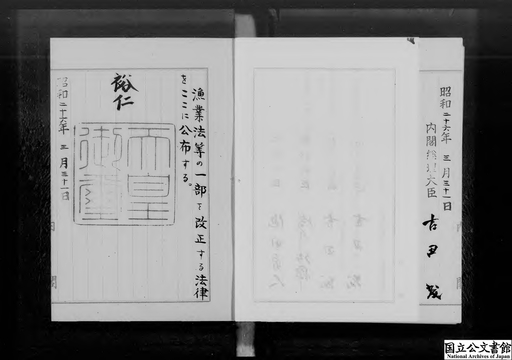 昭和二十六年三月三十一日
内閣総理大臣 吉田茂
漁業法等の一部を改正する法律
をここに公布する。
裕仁
天皇御璽
昭和二十六年三月三十一日
内閣
国立公文書館
National Archives of Japan